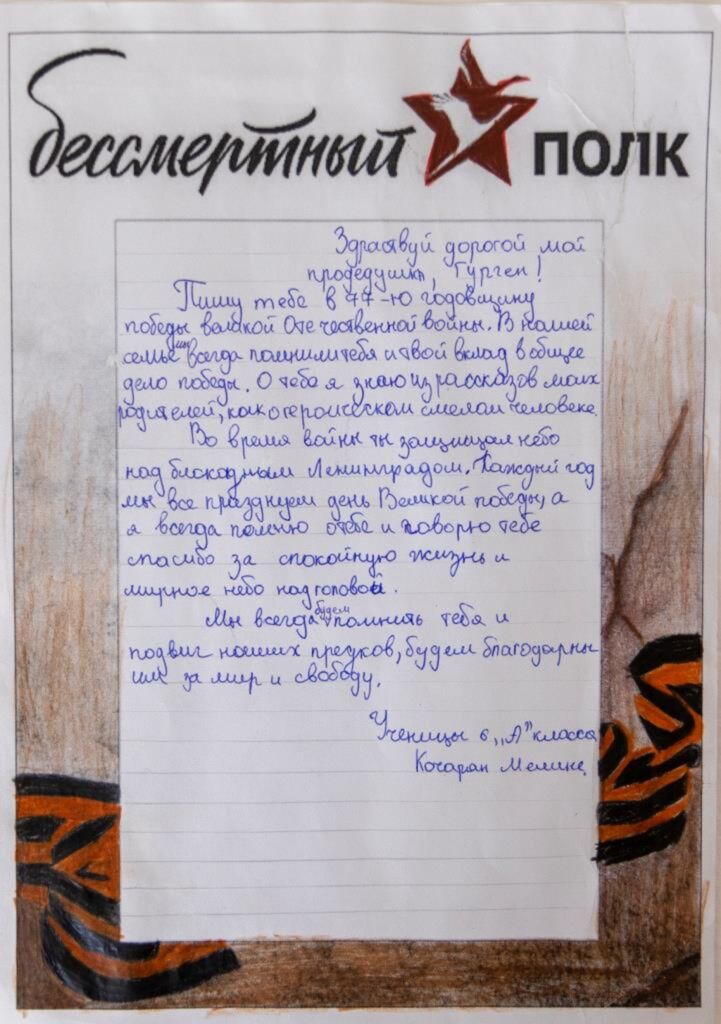 бессмертный полк
Здраствуй дорогой мой
продедушка, Гурген!
Пишу тебе в 77-ю годовщину
победы великой Отечественной войны. В нашей
семье мы всегда помним тебя и твой вклад в общее
дело победы. О тебе я знаю из рассказов моих
родителей, как о героическом смелом человеке.
Во время войны ты защищал небо
над блокадным Ленинградом. Каждый год
мы все празднуем день Великой победы, а
я всегда помню о тебе и говорю тебе
спасибо за спокойную жизнь и
мирное небо над головой.
Мы всегда будем помнить тебя и
подвиг наших предков, будем благодарны
им за мир и свободу.
Ученицы 6 „А" класса
Кочарян Мелине